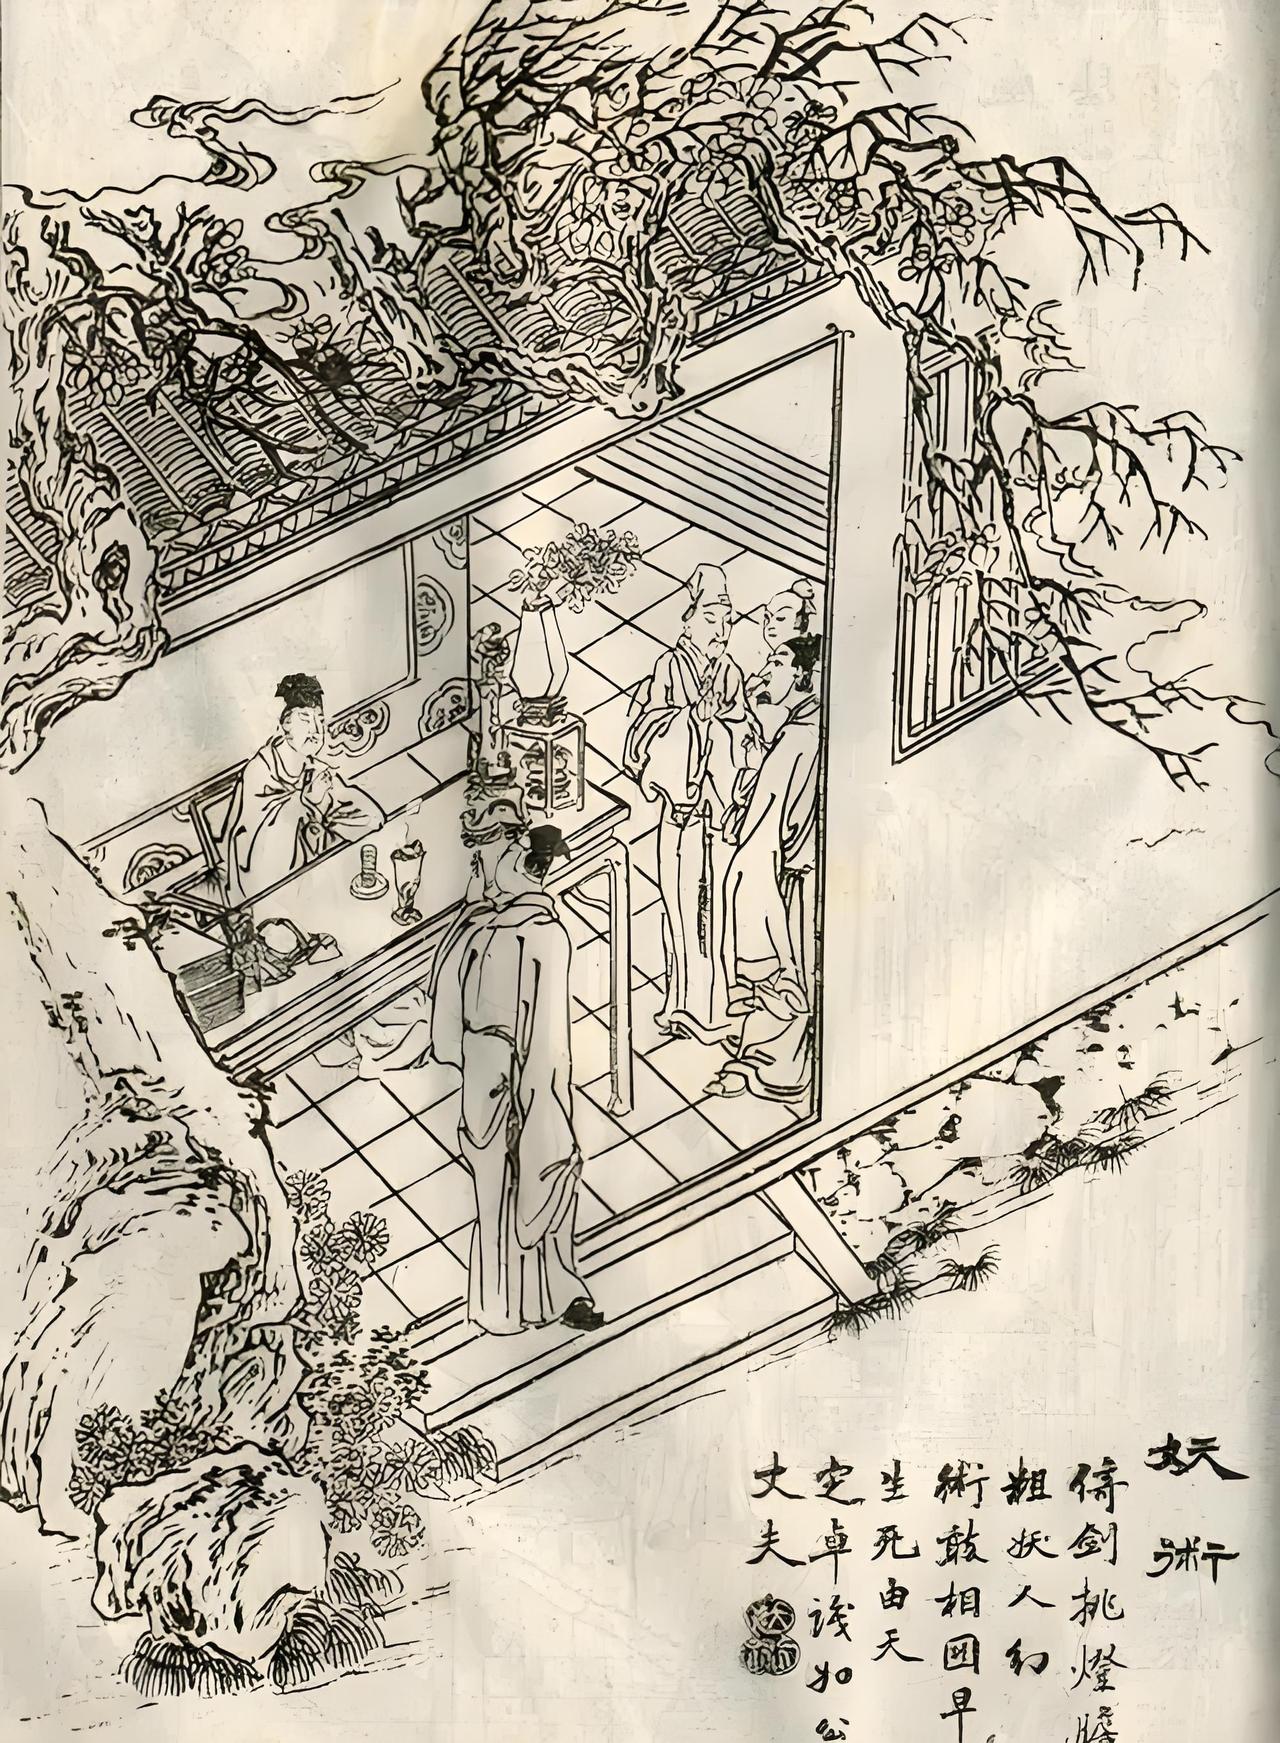 妖術
倚劍挑燈膽
粗妖人幻
術敢相圖早
生死由天
定卓識如公
丈夫